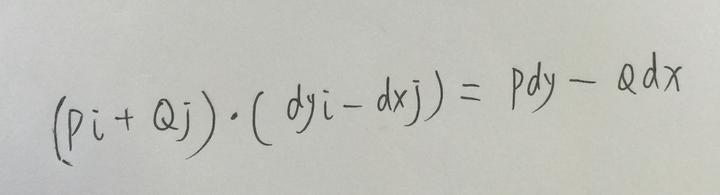 (Pi + Qj)·( dyi − dxj) = Pdy − Qdx